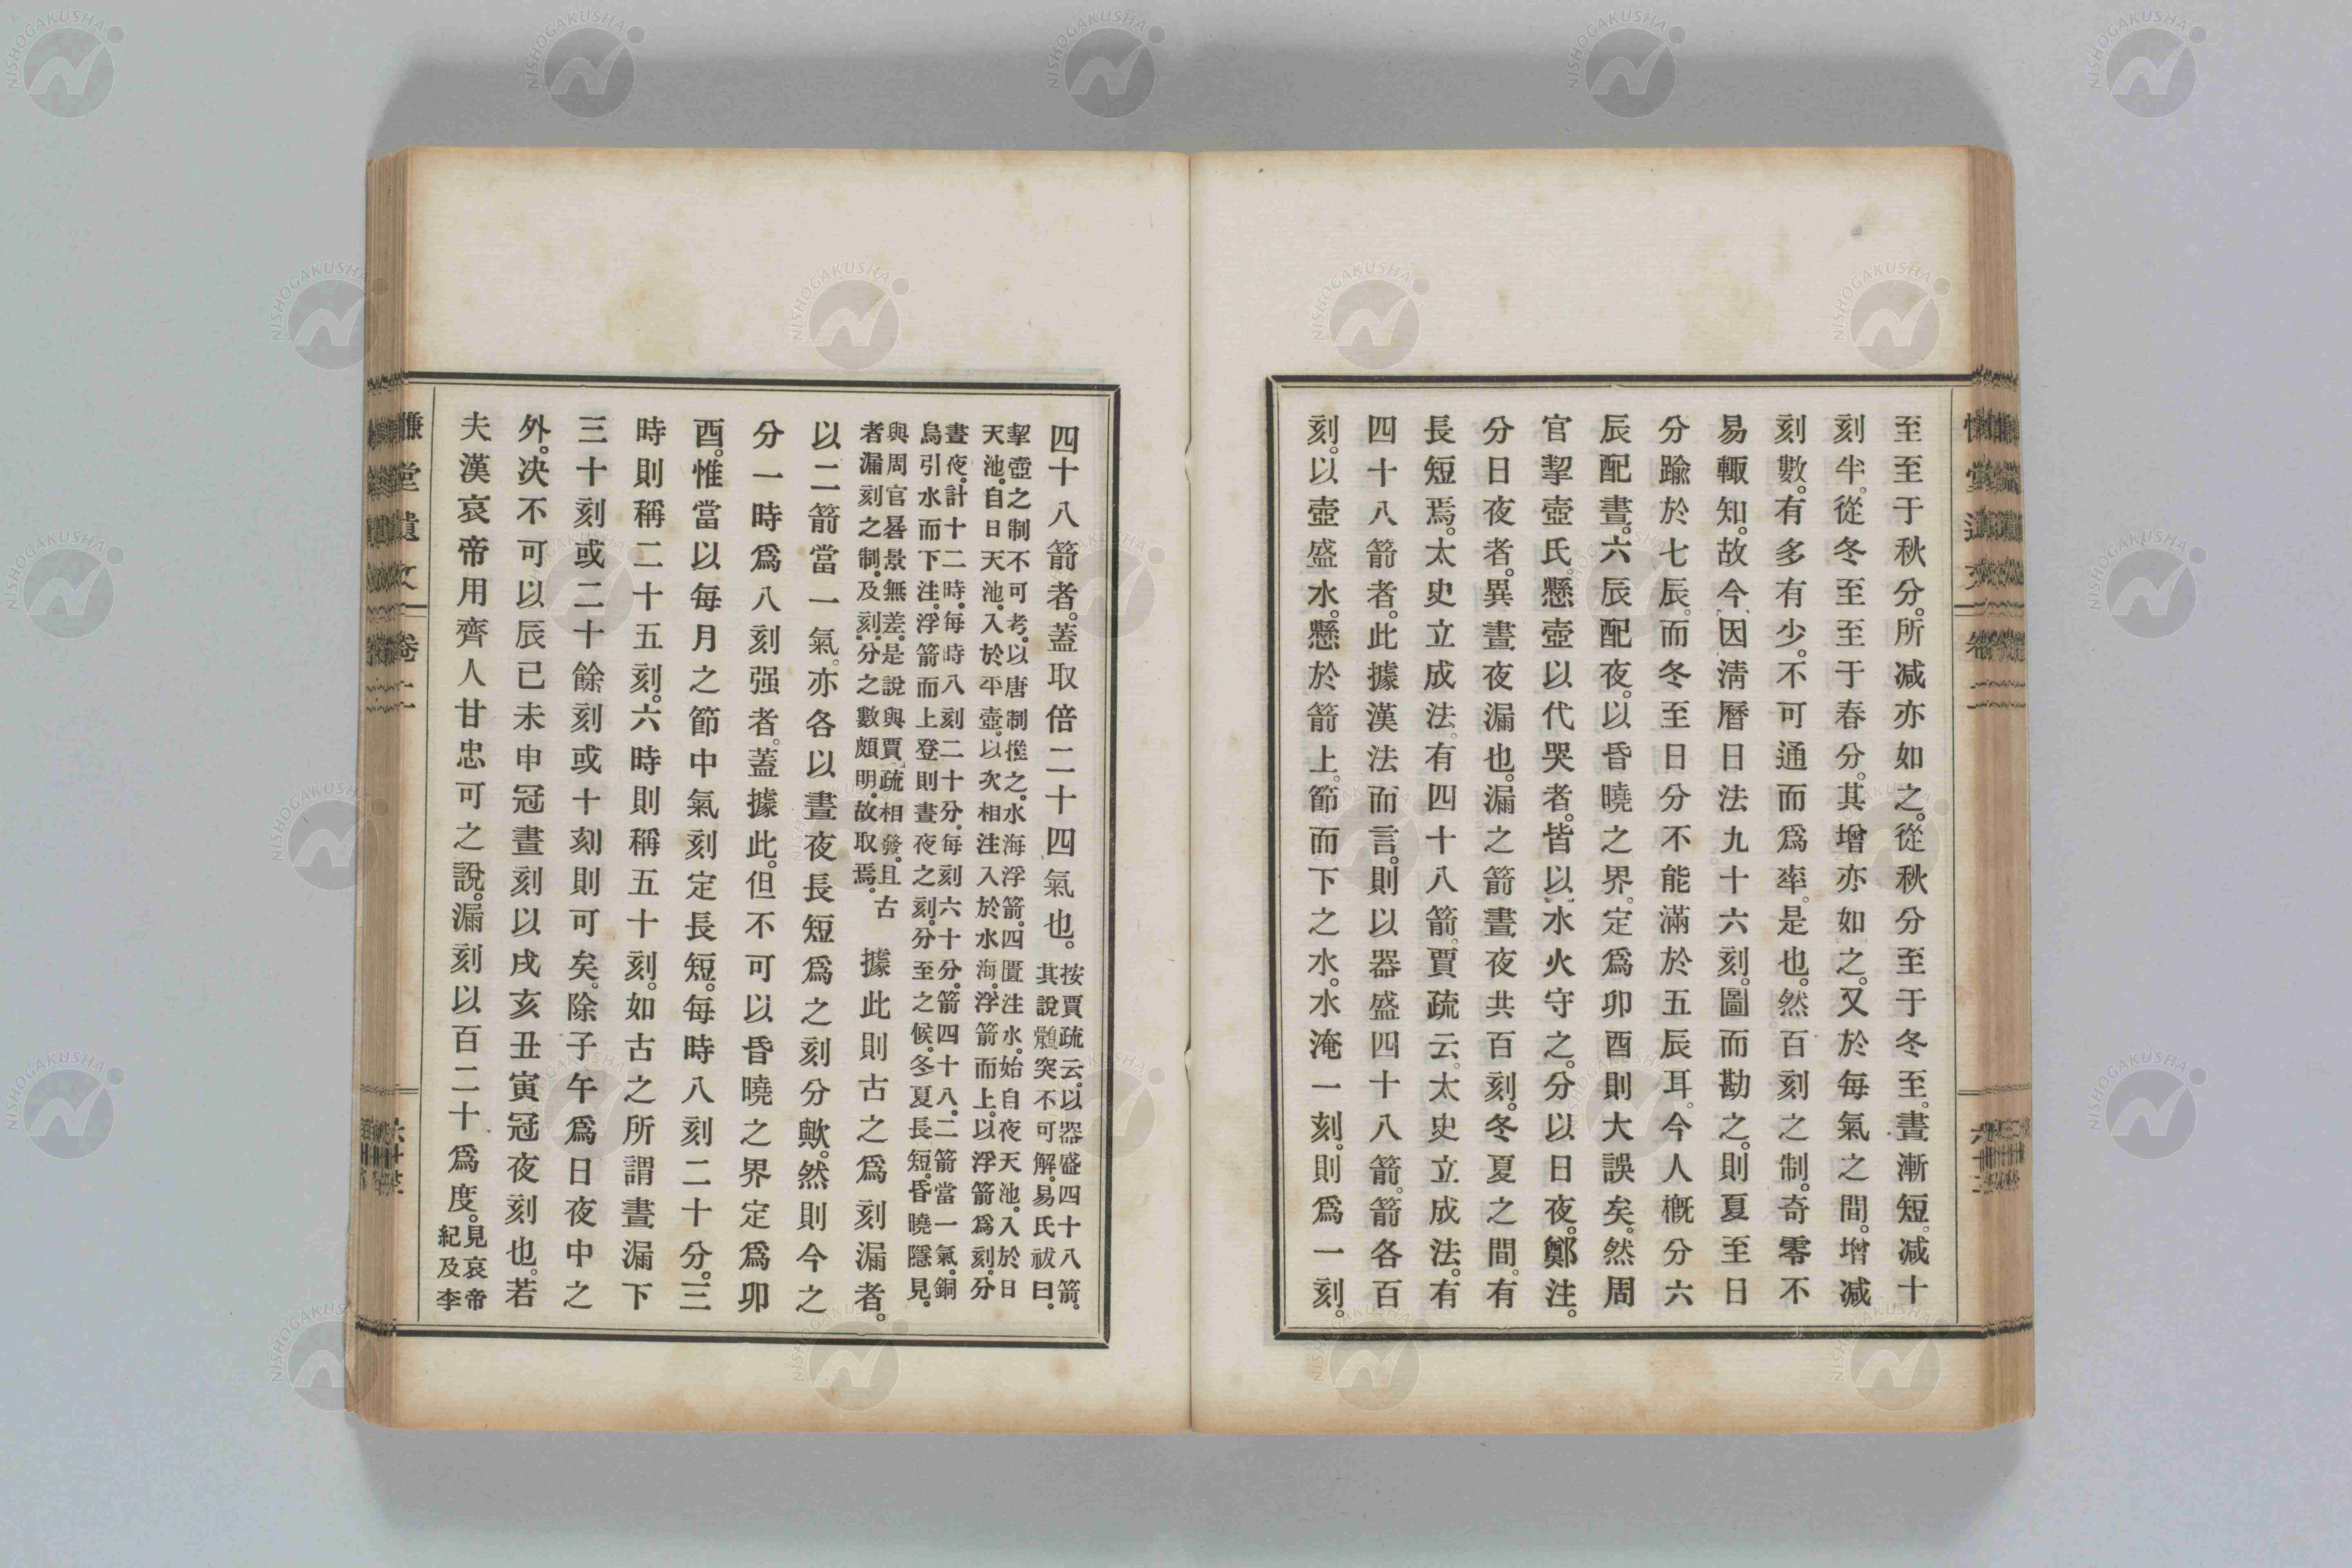 至至于秋分。所减亦如之。從秋分至于冬至。晝漸短。减十
刻半。從冬至至于春分。其增亦如之。又於每氣之間。增减
刻數。有多有少。不可通而爲率。是也。然百刻之制。奇零不
易輙知。故今因淸曆日法九十六刻。圖而勘之。則夏至日
分踰於七辰。而冬至日分不能滿於五辰耳。今人槪分六
辰配晝。六辰配夜。以昏曉之界。定爲卯酉則大誤矣。然周
官挈壺氏懸壺以代哭者。皆以水火守之。分以日夜。鄭注。
分日夜者。異晝夜漏也。漏之箭晝夜共百刻。冬夏之間。有
長短焉。太史立成法。有四十八箭。賈疏云。太史立成法。有
四十八箭者。此據漢法而言。則以器盛四十八箭。箭各百
刻。以壺盛水。懸於箭上。節而下之水。水淹一刻。則爲一刻。
四十八箭者。蓋取倍二十四氣也。按賈疏云。以器盛四十八箭。
其說䫍突不可解。易氏祓曰。
挈壺之制不可考。以唐制推之。水海浮箭。四匱注水。始自夜天池。入於日
天池。自日天池。入於平壺。以次相注入於水海。浮箭而上。以浮箭爲刻。分
晝夜。計十二時。每時八刻二十分。每刻六十分。箭四十八。二箭當一氣。銅
烏引水而下注。浮箭而上登則晝夜之刻。分至之候。冬夏長短。昏曉隱見。
與周官晷景無差。是說與賈疏相發。且古
者漏刻之制。及刻。分之數頗明。故取焉。
據此則古之爲刻漏者。
以二箭當一氣。亦各以晝夜長短爲之刻分歟。然則今之
分一時爲八刻强者。蓋據此。但不可以昏曉之界定爲卯
酉。惟當以每月之節中氣刻定長短。每時八刻二十分。三
時則稱二十五刻。六時則稱五十刻。如古之所謂晝漏下
三十刻或二十餘刻或十刻則可矣。除子午爲日夜中之
外。決不可以辰巳未申冠晝刻以戌亥丑寅冠夜刻也。若
夫漢哀帝用齊人甘忠可之說。漏刻以百二十爲度。見哀帝
紀及李
慊堂遺文 卷二